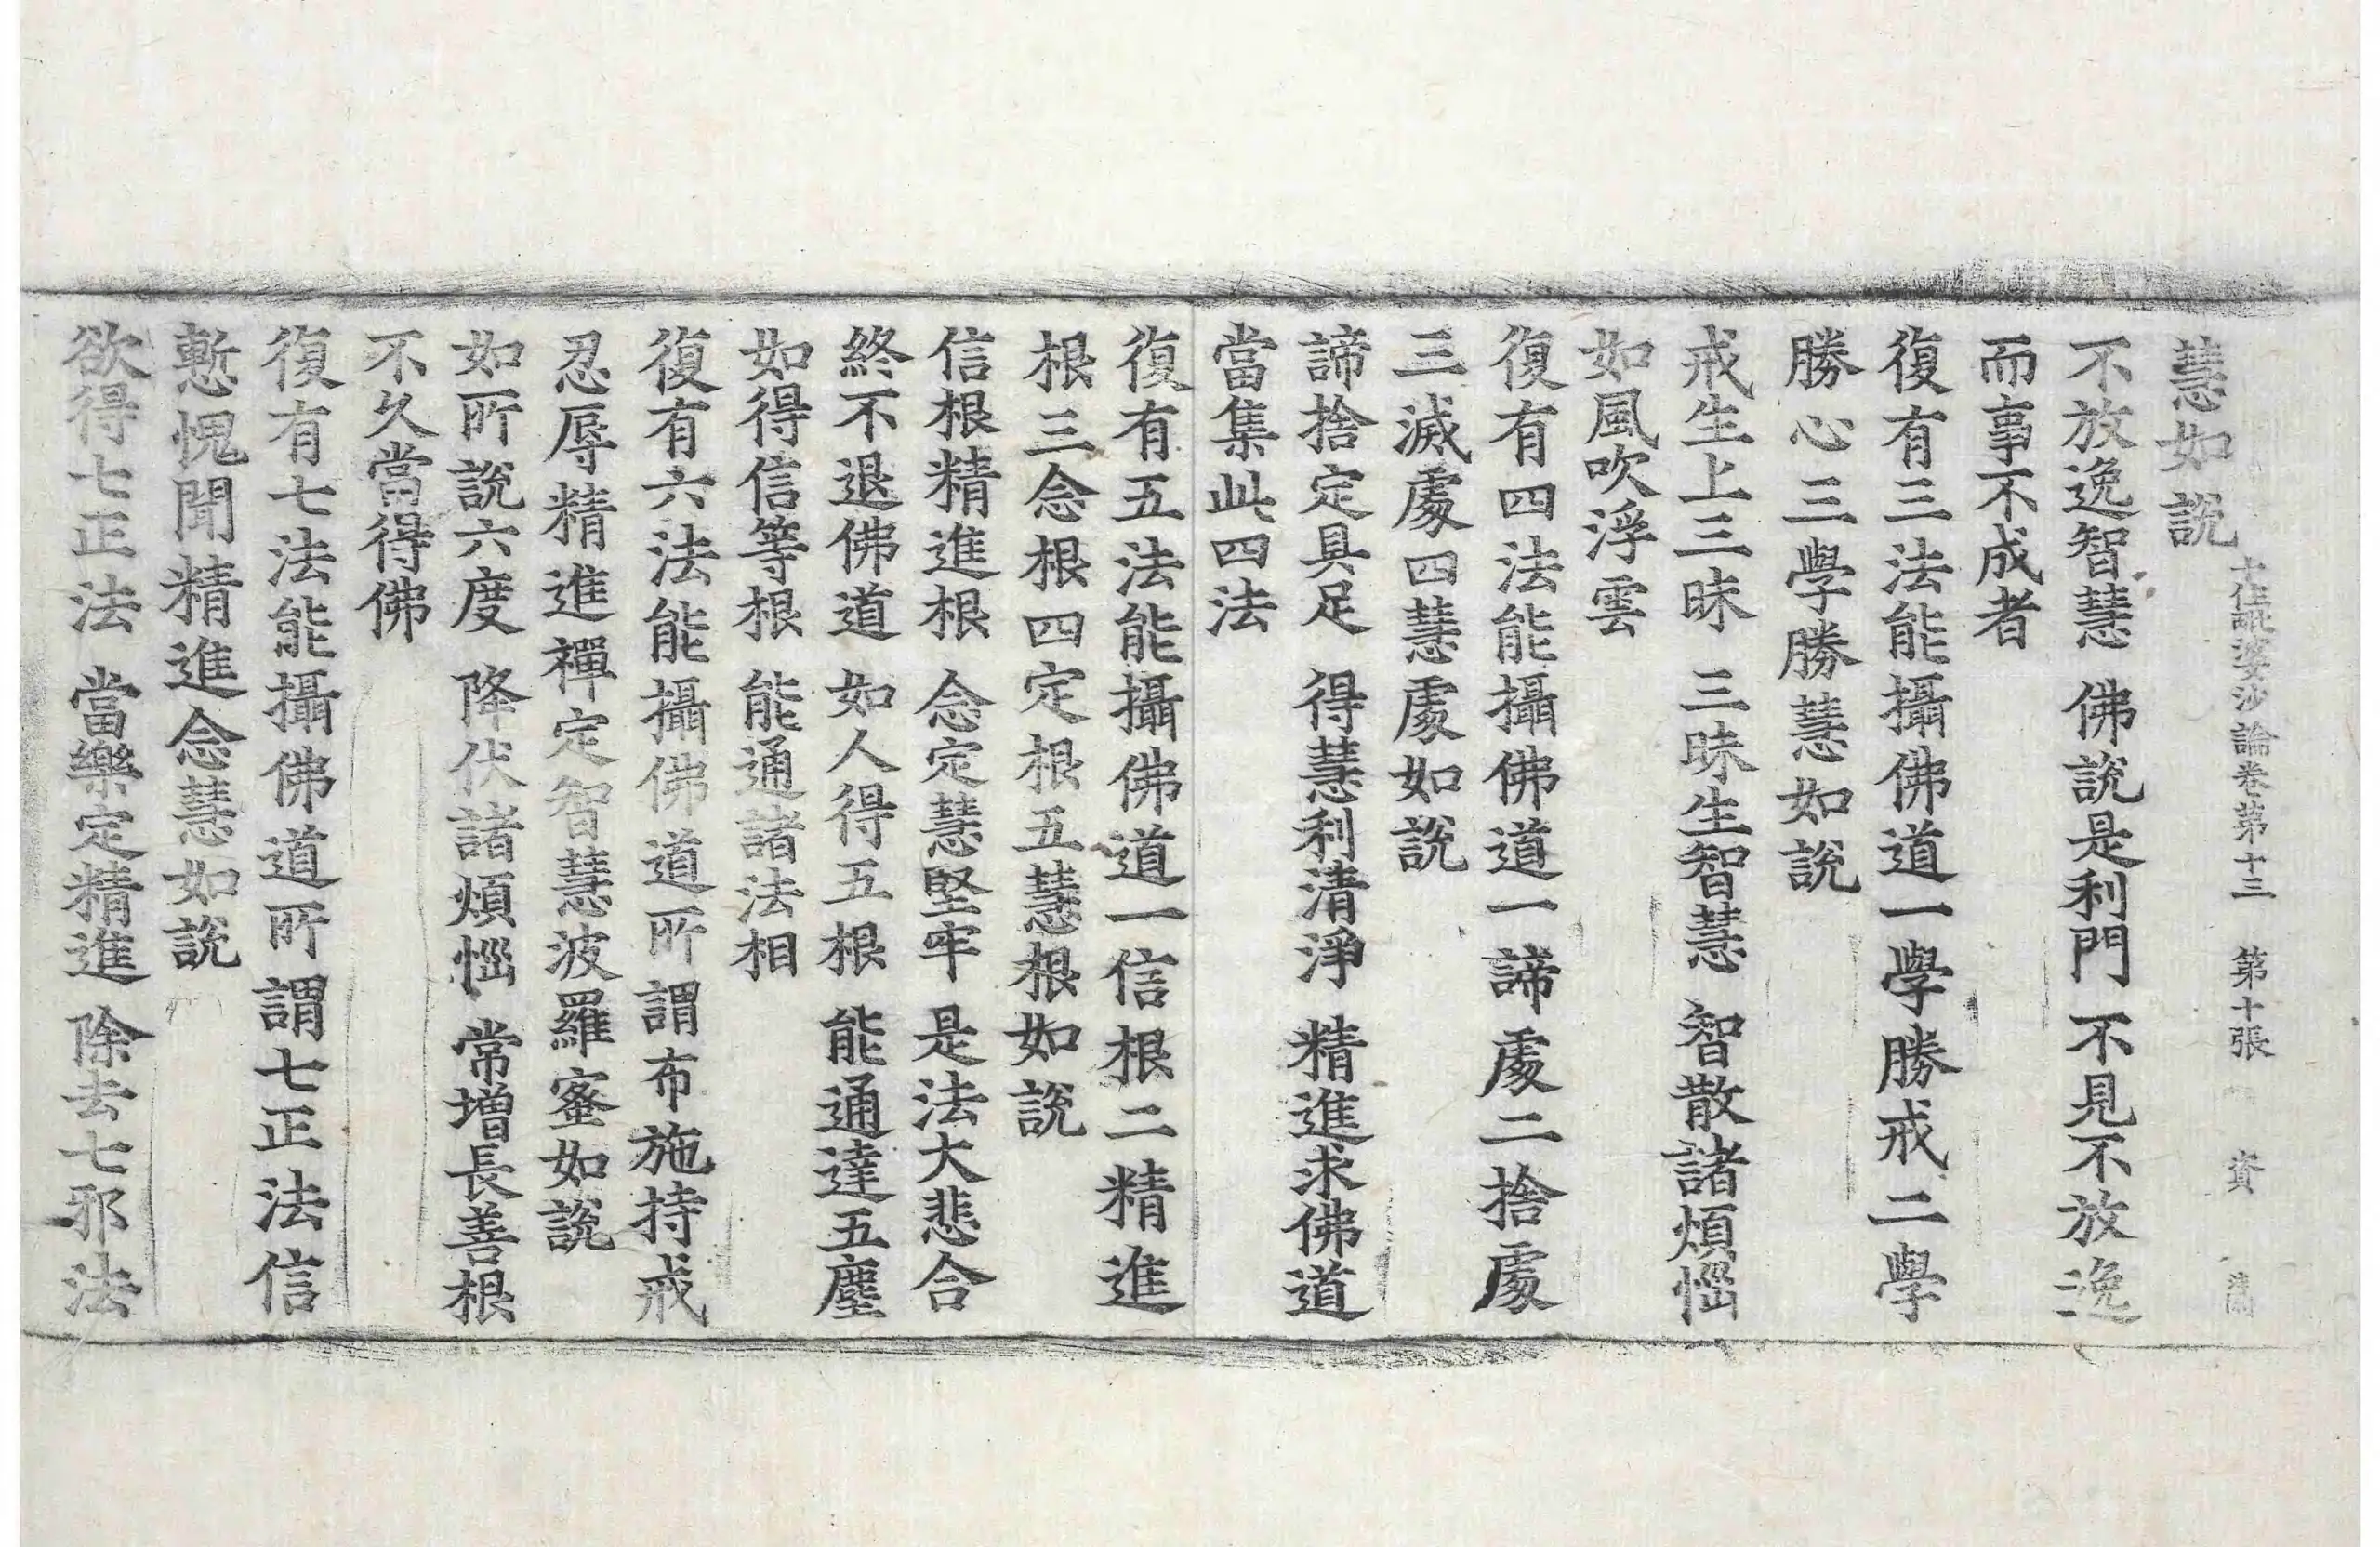 十住毗婆沙論卷第十三　第十張　資
慧如說
不放逸智慧　佛說是利門　不見不放逸
而事不成者
復有三法能攝佛道一學勝戒二學
勝心三學勝慧如說
戒生上三昧　三昧生智慧　智散諸煩惱
如風吹浮雲
復有四法能攝佛道一諦處二捨處
三滅處四慧處如說
諦捨定具足　得慧利清淨　精進求佛道
當集此四法
復有五法能攝佛道一信根二精進
根三念根四定根五慧根如說
信根精進根　念定慧堅牢　是法大悲合
終不退佛道　如人得五根　能通達五塵
如得信等根　能通諸法相
復有六法能攝佛道所謂布施持戒
忍辱精進禪定智慧波羅蜜如說
如所說六度　降伏諸煩惱　常增長善根
不久當得佛
復有七法能攝佛道所謂七正法信
慙愧聞精進念慧如說
欲得七正法　當樂定精進　除去七邪法